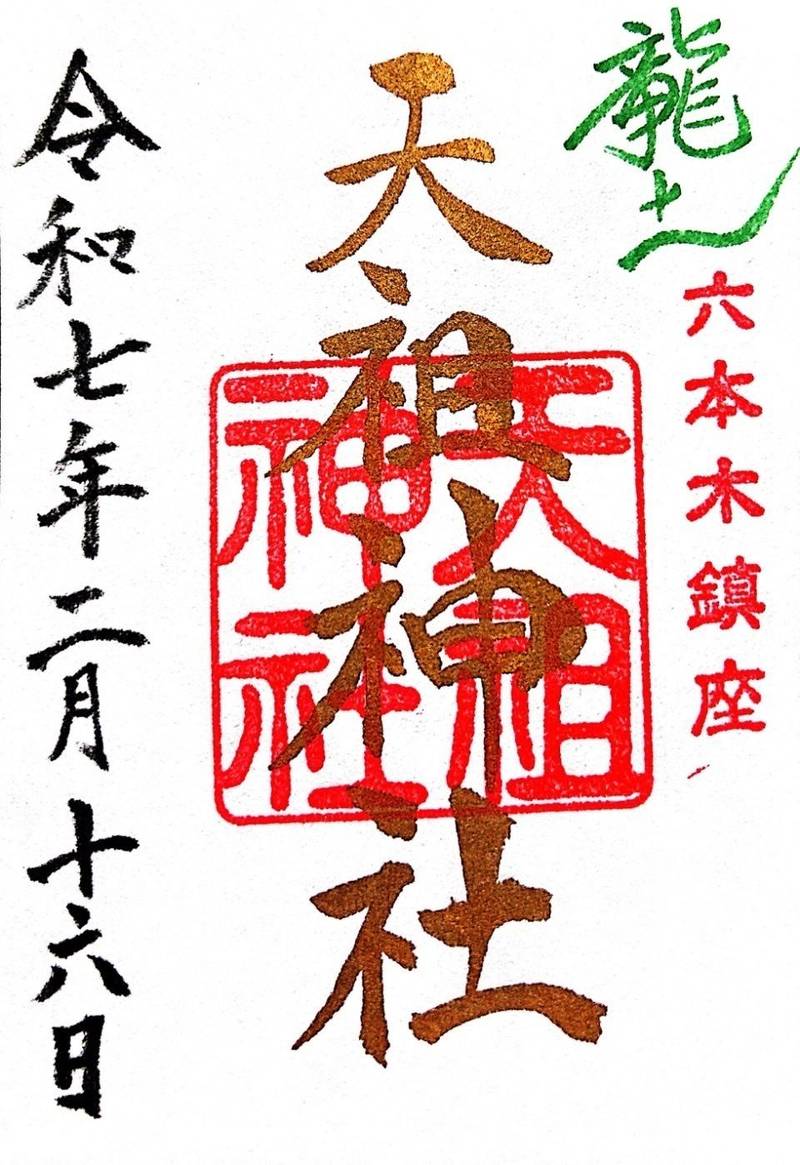 龍土
六本木鎮座
天祖神社
天祖
神社
令和七年二月十六日